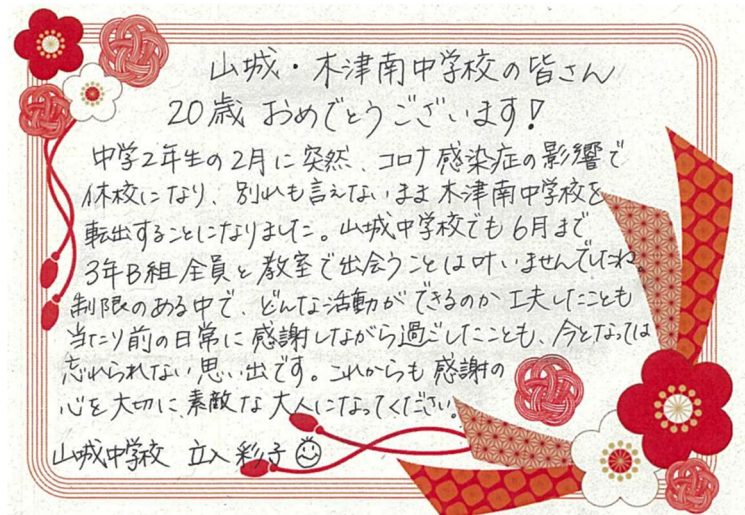 山城・木津南中学校の皆さん
20歳 おめでとうございます!
中学2年生の2月に突然、コロナ感染症の影響で
休校になり、別れも言えないまま木津南中学校を
転出することになりました。山城中学校でも6月まで
3年B組全員と教室で出会うことは叶いませんでしたね。
制限のある中で、どんな活動ができるのか工夫したことも
当たり前の日常に感謝しながら過ごしたことも、今となっては
忘れられない思い出です。これからも感謝の
心を大切に、素敵な大人になってください。
山城中学校 立入彩子